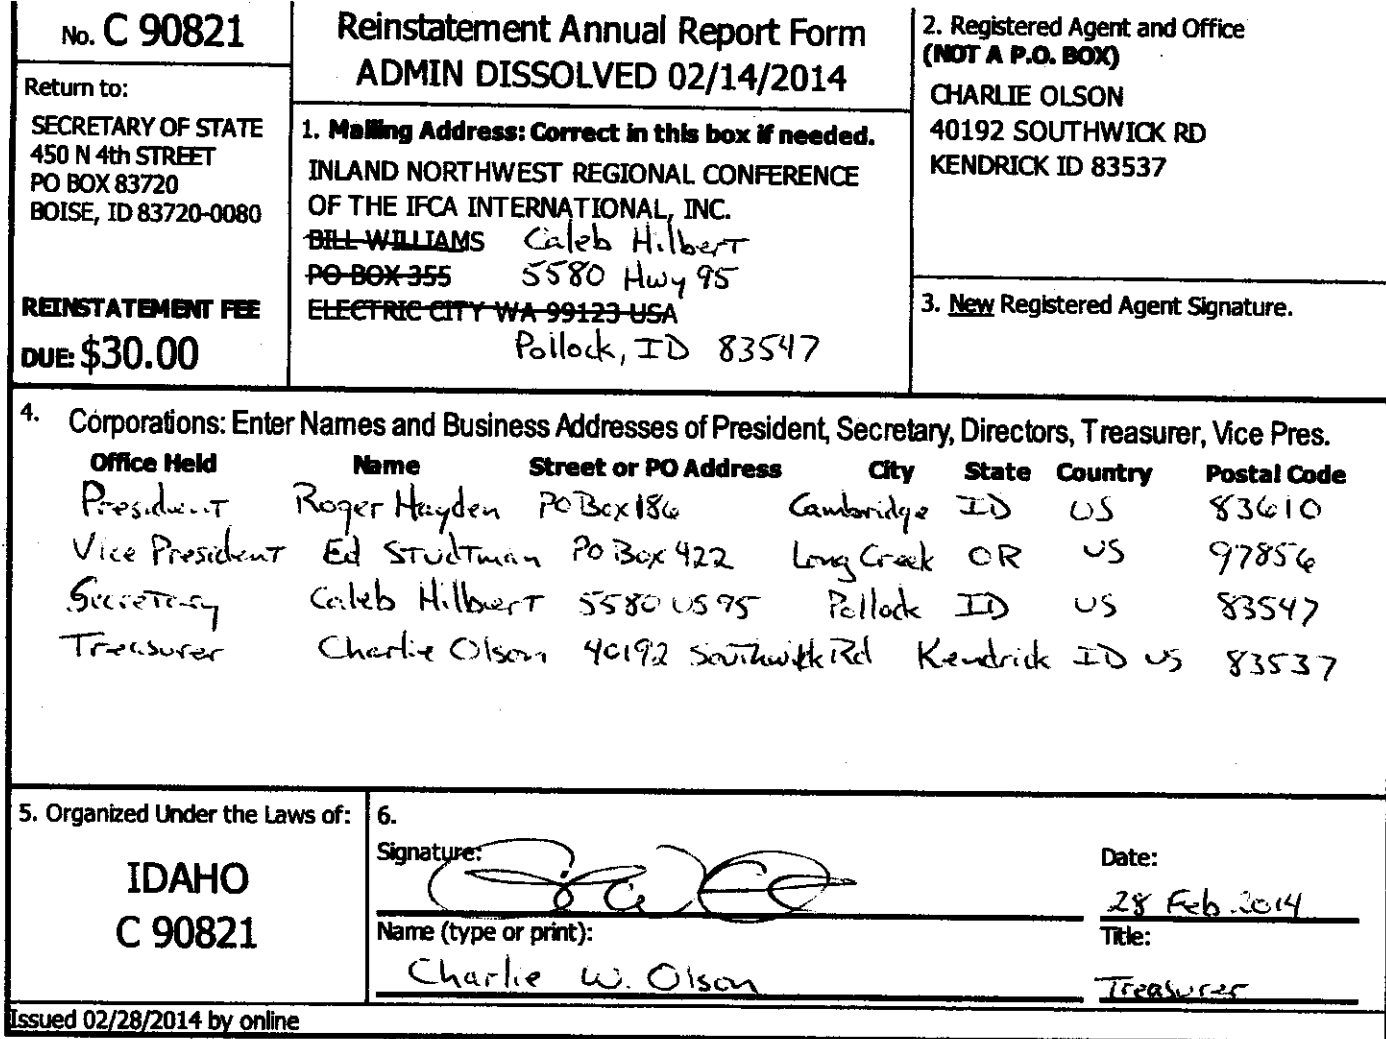 No. C 90821
Return to:
SECRETARY OF STATE
450 N 4th STREET
PO BOX 83720
BOISE, ID 83720-0080
REINSTATEMENT FEE
DUE: $30.00
Reinstatement Annual Report Form
ADMIN DISSOLVED 02/14/2014
1. Mailing Address: Correct in this box if needed.
INLAND NORTHWEST REGIONAL CONFERENCE
OF THE IFCA INTERNATIONAL, INC.
BILL WILLIAMS Caleb Hilbert
PO BOX 355 5580 Hwy 95
ELECTRIC CITY WA 99123 USA
Pollock, ID 83547
2. Registered Agent and Office
(NOT A P.O. BOX)
CHARLIE OLSON
40192 SOUTHWICK RD
KENDRICK ID 83537
3. New Registered Agent Signature.
4. Corporations: Enter Names and Business Addresses of President, Secretary, Directors, Treasurer, Vice Pres.
Office Held Name Street or PO Address City State Country Postal Code
President Roger Hayden PO Box 186 Cambridge ID US 83610
Vice President Ed Studtman PO Box 422 Long Creek OR US 97856
Secretary Caleb Hilbert 5580 US 95 Pollock ID US 83547
Treasurer Charlie Olson 40192 Southwick Rd Kendrick ID US 83537
5. Organized Under the Laws of:
IDAHO
C 90821
6.
Signature:
Date:
28 Feb. 2014
Name (type or print):
Charlie W. Olson
Title:
Treasurer
Issued 02/28/2014 by online